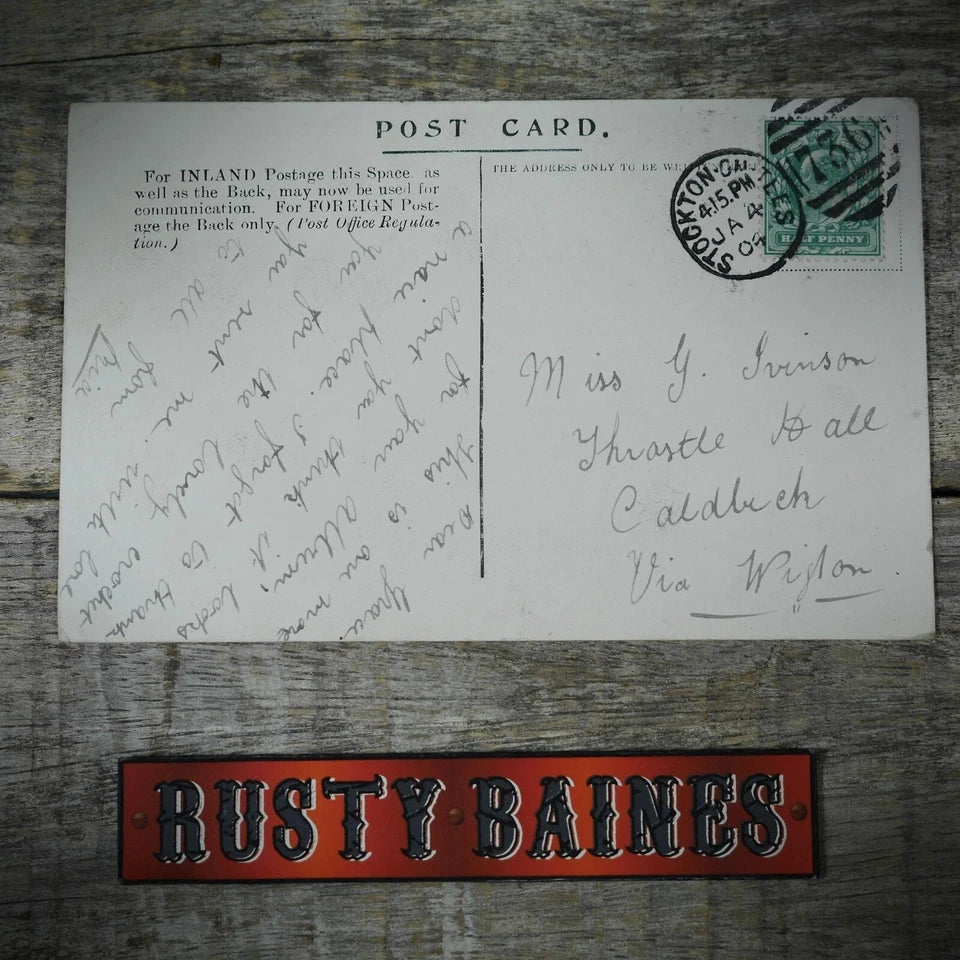 POST CARD.
For INLAND Postage this Space, as
well as the Back, may now be used for
communication. For FOREIGN Post-
age the Back only. (Post Office Regula-
tion.)
Dear Grace.
This is one more
for your Album;
dont you think it looks
a nice place. I forgot to thank
you for the lovely crochet
you sent me. with love
to all from
THE ADDRESS ONLY TO BE
STOCKTON-ON-TEES
4.15.PM
JA 4
04
736
HALF PENNY
Miss G. Ivinson
Thrastle Hall
Caldbeck
Via Wigton.
RUSTY BAINES